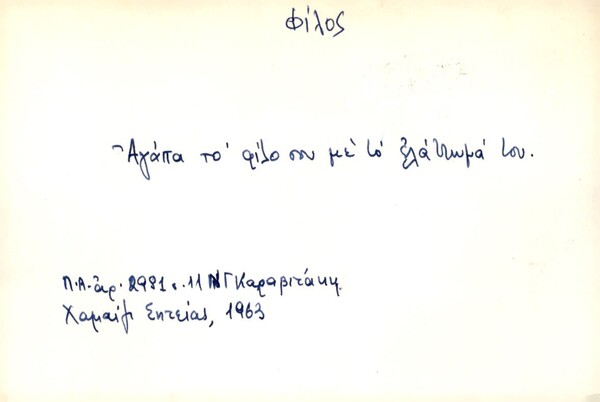 φίλος
Ἀγάπα τὸ φίλο σου μὲ τὸ ἐλάττωμά του.
Π.Α. ἀρ. 2981 σ. 11 Γ Καραβιτάκη
Χαμαίζι Σητείας, 1963